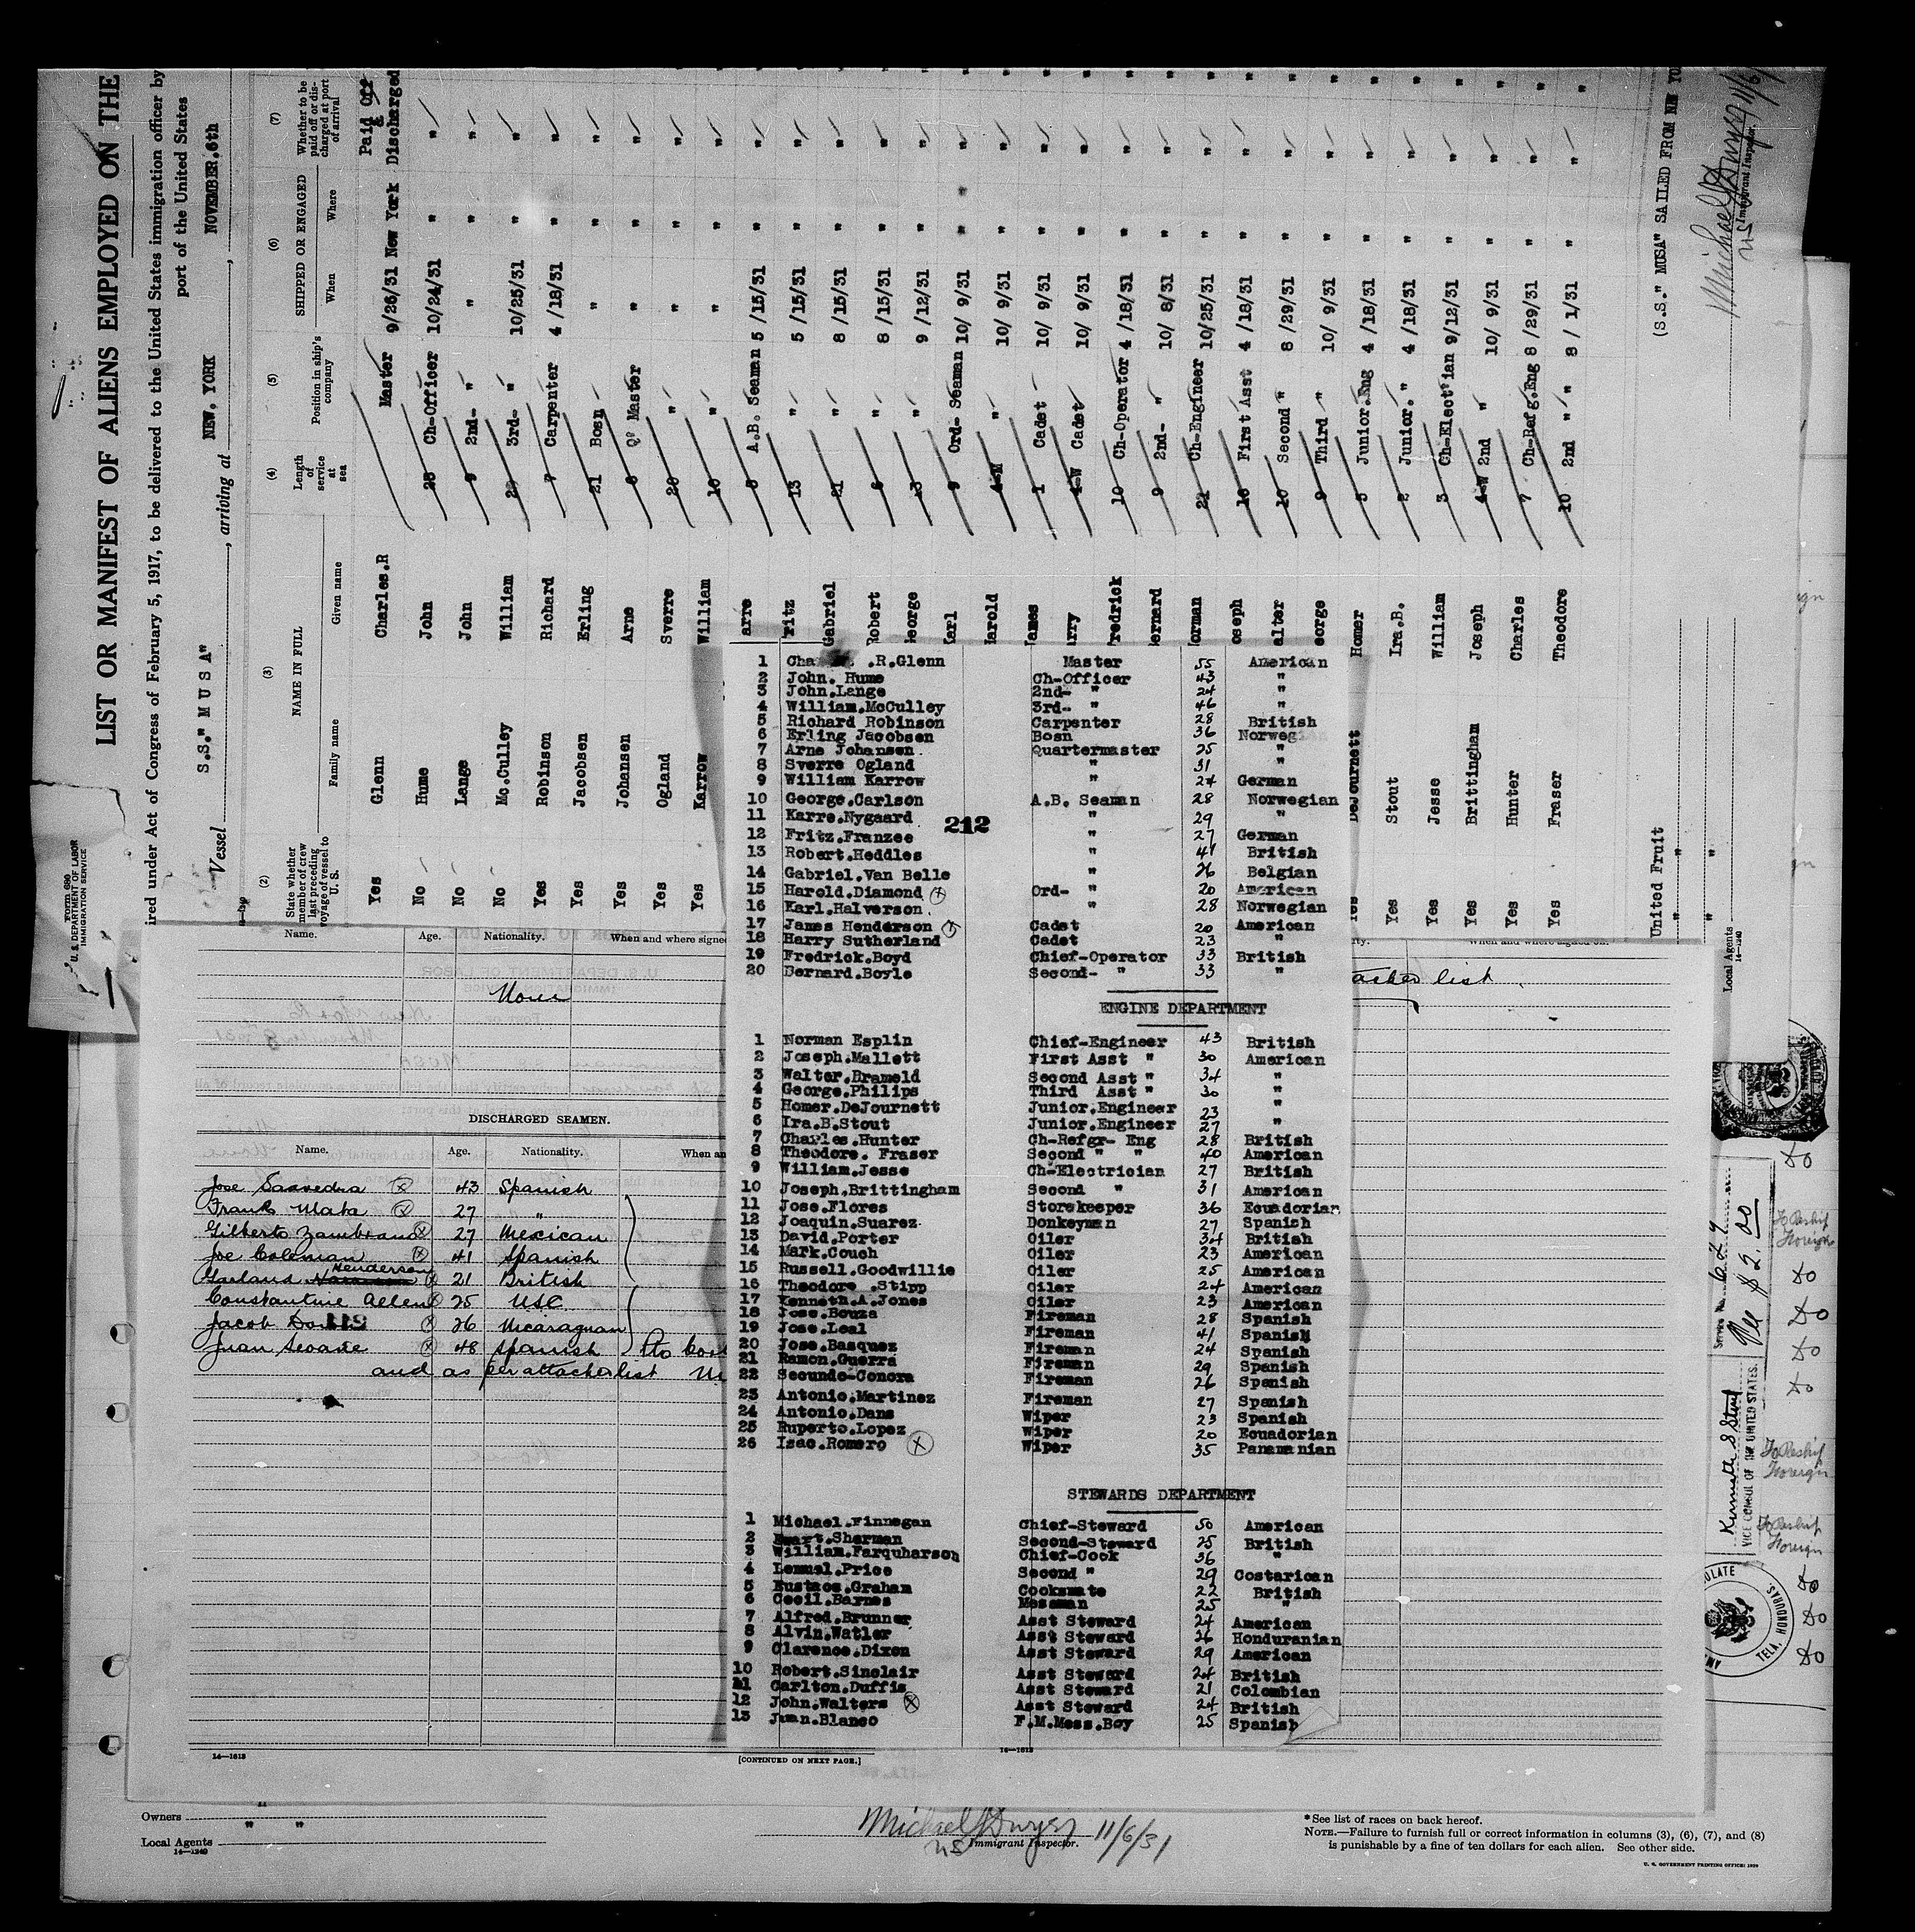 LIST OR MANIFEST OF ALIENS EMPLOYED ON THE
ired under Act of Congress of February 5, 1917, to be delivered to the United States immigration officer by
port of the United States
Vessel S.S." M U S A" , arriving at NEW, YORK , NOVEMBER.6th
Form 680
U. S. DEPARTMENT OF LABOR
IMMIGRATION SERVICE
(2) (3) (4) (5) (6) (7)
State whether member of crew last preceding voyage of vessel to U. S.
NAME IN FULL
Family name Given name
Length of service at sea
Position in ship's company
SHIPPED OR ENGAGED
When Where
Whether to be paid off or discharged at port of arrival
Yes Glenn Charles.R Master 9/26/31 New York Paid Off & Discharged
No Hume John 28 Ch-Officer 10/24/31 " "
No Lange John 9 2nd- " " " "
No Mc.Culley William 29 3rd- " 10/25/31 " "
Yes Robinson Richard 7 Carpenter 4 /18/31 " "
Yes Jacobsen Erling 21 Bosn " " "
Yes Johansen Arne 6 Qr Master " " "
Yes Ogland Sverre 20 " " " "
Yes Karrow William 10 " " " "
arre 5 A.B. Seaman 5 /15/31 " "
ritz 13 " 5 /15/31 " "
Gabriel 21 " 8 /15/31 " "
Robert 6 " 8 /15/31 " "
George 13 " 9 /12/31 " "
Karl 9 Ord- Seaman 10/ 9/31 " "
Harold 4-M " 10/ 9/31 " "
James 1 Cadet 10/ 9/31 " "
arry 4-W Cadet 10/ 9/31 " "
redrick 10 Ch-Operator 4 /18/31 " "
ernard 9 2nd- " 10/ 8/31 " "
Norman 21 Ch-Engineer 10/25/31 " "
oseph 16 First Asst 4 /18/31 " "
alter 10 Second " 8 /29/31 " "
eorge 9 Third " 10/ 9/31 " "
Yes DeJournett Homer 5 Junior.Eng 4 /18/31 " "
Yes Stout Ira.B. 2 Junior." 4 /18/31 " "
Yes Jesse William 3 Ch-Elect'ian 9/12/31 " "
Yes Brittingham Joseph 4-W 2nd " 10/ 9/31 " "
Yes Hunter Charles 7 Ch-Refg.Eng 8 /29/31 " "
Yes Fraser Theodore 10 2nd " " 8 / 1/31 " "
(S.S." MUSA" SAILED FROM NEW YO
United Fruit
Local Agents
14—1240
Immigrant Inspector.
Name. Age. Nationality. When and where signed
None
DISCHARGED SEAMEN.
Name. Age. Nationality. When an
Jose Saavedra 43 Spanish
Frank Mata 27 "
Gilberto Zambrano 27 Mexican
Joe Coloman 41 Spanish
Garland Henderson 21 British
Constantine Allen 25 USC
Jacob 26 Nicaraguan
Juan Seoane 48 Spanish
and as per attached list
14—1613
[CONTINUED ON NEXT PAGE.]
16—1613
attached list
1 Cha .R.Glenn Master 55 American
2 John. Hume Ch-Officer 43 "
3 John.Lange 2nd- " 24 "
4 William.McCulley 3rd- " 46 "
5 Richard Robinson Carpenter 28 British
6 Erling Jacobsen Bosn 36 Norweg
7 Arne Johansen. Quartermaster 25 "
8 Sverre Ogland " 31 "
9 William Karrow " 24 German
10 George.Carlson A.B. Seaman 28 Norwegian
11 Karre.Nygaard " 29 "
212
12 Fritz.Franzee " 27 German
13 Robert.Heddles " 41 British
14 Gabriel.Van Belle " 26 Belgian
15 Harold.Diamond Ord- " 20 American
16 Karl.Halverson. " 28 Norwegian
17 James Henderson Cadet 20 American
18 Harry Sutherland Cadet 23 "
19 Fredrick.Boyd Chief-Operator 33 British
20 Bernard.Boyle Second- " 33 "
ENGINE DEPARTMENT
1 Norman Esplin Chief-Engineer 43 British
2 Joseph.Mallett First Asst " 30 American
3 Walter.Brameld Second Asst " 34 "
4 George.Philips Third Asst " 30 "
5 Homer.DeJournett Junior.Engineer 23 "
6 Ira.B.Stout Junior.Engineer 27 "
7 Charles.Hunter Ch-Refgr- Eng 28 British
8 Theodore. Fraser Second " " 40 American
9 William.Jesse Ch-Electrician 27 British
10 Joseph.Brittingham Second " 31 American
11 Jose.Flores Storekeeper 36 Ecuadorian
12 Joaquin.Suarez. Donkeyman 27 Spanish
13 David.Porter Oiler 34 British
14 Mark.Couch Oiler 23 American
15 Russell.Goodwillie Oiler 25 American
16 Theodore .Stipp Oiler 24 American
17 Kenneth.A.Jones Oiler 23 American
18 Jose.Bouza Fireman 28 Spanish
19 Jose.Leal Fireman 41 Spanish
20 Jose.Basquez Fireman 24 Spanish
21 Ramon.Guerra Fireman 29 Spanish
22 Secundo-Conora Fireman 26 Spanish
23 Antonio.Martinez Fireman 27 Spanish
24 Antonio.Dans Wiper 23 Spanish
25 Ruperto.Lopez Wiper 20 Ecuadorian
26 Isac.Romero Wiper 35 Panamanian
STEWARDS DEPARTMENT
1 Michael.Finnegan Chief-Steward 50 American
2 Ewart.Sherman Second-Steward 25 British
3 William.Farquharson Chief-Cook 36 "
4 Lemuel.Price Second " 29 Costarican
5 Eustace.Graham Cooksmate 22 British
6 Cecil.Barnes Messman 25 "
7 Alfred.Brunner Asst Steward 24 American
8 Alvin.Watler Asst Steward 26 Honduranian
9 Clarence.Dixon Asst Steward 29 American
10 Robert.Sinclair Asst Steward 24 British
11 Carlton.Duffis Asst Steward 21 Colombian
12 John.Walters Asst Steward 24 British
13 Juan.Blanco F.M.Mess.Boy 25 Spanish
Service No. 629
Fee $ 2.00
VICE CONSUL OF THE UNITED STATES.
TELA, HONDURAS
Do
To Reship Foreign
Do
Do
Do
Do
To Reship Foreign
To Reship Foreign
Do
Do
Do
Owners " "
Local Agents
14—1240
Michael J Dwyer 11/6/31
US Immigrant Inspector.
*See list of races on back hereof.
NOTE.—Failure to furnish full or correct information in columns (3), (6), (7), and (8)
is punishable by a fine of ten dollars for each alien. See other side.
U. S. GOVERNMENT PRINTING OFFICE: 1929